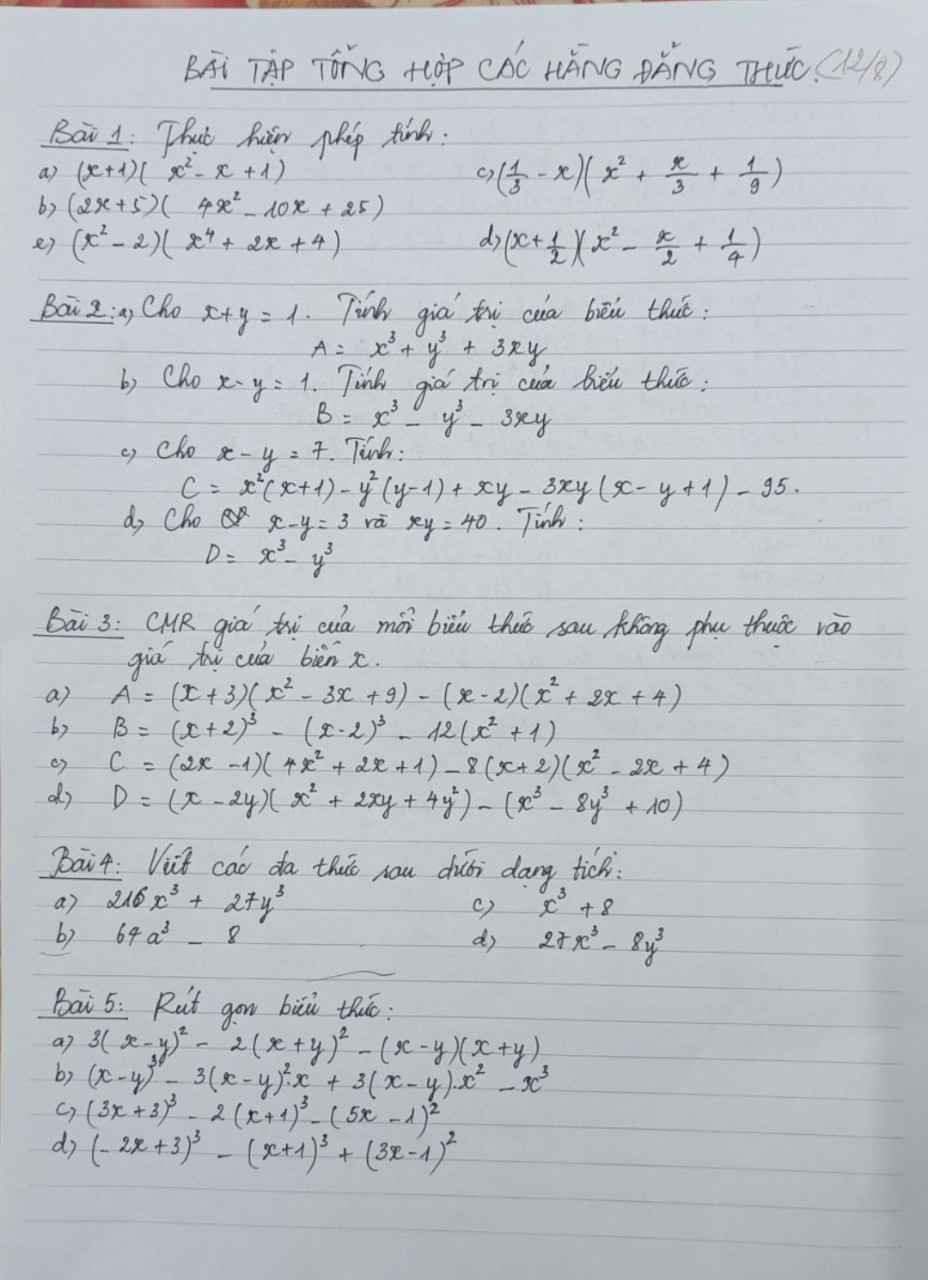 BÀI TẬP TỔNG HỢP CÁC HẰNG ĐẲNG THỨC. (12/8)
Bài 1: Thực hiện phép tính:
a) (x+1)( x² - x + 1)
c) (1/3 - x)( x² + x/3 + 1/9)
b) (2x+5)( 4x² - 10x + 25)
e) (x² - 2)( x⁴ + 2x + 4)
d) (x + 1/2)( x² - x/2 + 1/4)
Bài 2: a) Cho x+y = 1. Tính giá trị của biểu thức:
A = x³ + y³ + 3xy
b) Cho x-y = 1. Tính giá trị của biểu thức:
B = x³ - y³ - 3xy
c) Cho x - y = 7. Tính:
C = x²(x+1) - y²(y-1) + xy - 3xy (x - y + 1) - 95.
d) Cho x-y = 3 và xy = 40. Tính:
D = x³ - y³
Bài 3: CMR giá trị của mỗi biểu thức sau không phụ thuộc vào
giá trị của biến x.
a) A = (x+3)( x² - 3x + 9) - (x-2)( x² + 2x + 4)
b) B = (x+2)³ - (x-2)³ - 12( x² + 1)
c) C = (2x - 1)( 4x² + 2x + 1) - 8(x+2)( x² - 2x + 4)
d) D = (x - 2y)( x² + 2xy + 4y²) - (x³ - 8y³ + 10)
Bài 4: Viết các đa thức sau dưới dạng tích:
a) 216x³ + 27y³
c) x³ + 8
b) 64a³ - 8
d) 27x³ - 8y³
Bài 5: Rút gọn biểu thức:
a) 3( x-y)² - 2( x+y)² - (x-y)(x+y)
b) (x-y)³ - 3(x-y)².x + 3(x-y).x² - x³
c) (3x+3)³ - 2(x+1)³ - (5x - 1)²
d) (-2x+3)³ - (x+1)³ + (3x-1)²